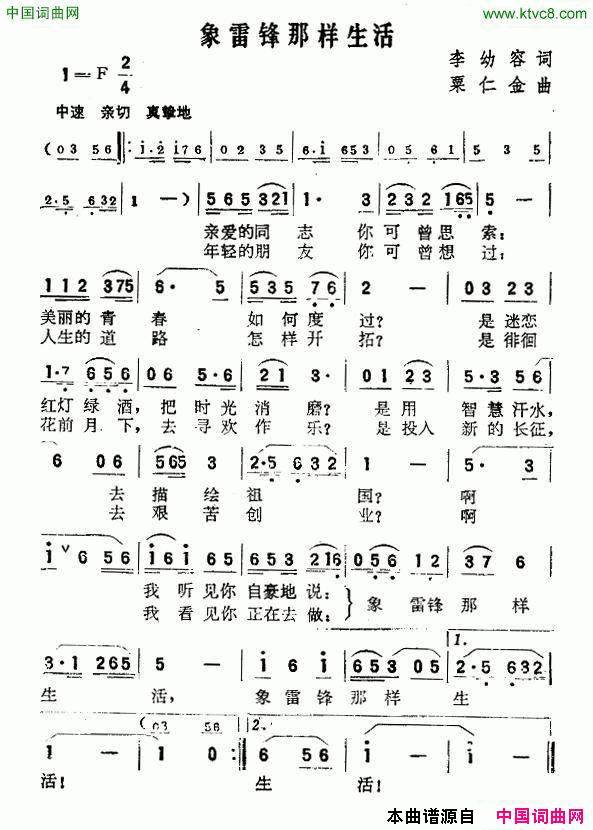 中国词曲网
www.ktvc8.com
象雷锋那样生活
1=F 2/4
李幼容词
粟仁金曲
中速 亲切 真挚地
(03 56 :1·2 176 02 35 6·1 653 05 61 5 3 5
2·5 632 1 —) 565 321 1· 3 232 165 5 —
亲爱的同志 你可曾思索:
年轻的朋友 你可曾想过:
112 375 6· 5 535 76 2 — 03 23
美丽的青春 如何度过? 是迷恋
人生的道路 怎样开拓? 是徘徊
1·7 656 06 5·6 21 3· 01 23 5·3 56
红灯绿酒,把时光消磨? 是用 智慧汗水,
花前月下,去寻欢作乐? 是投入 新的长征,
6 06 565 3 2·5 632 1 — 5· 3
去描绘祖国? 啊
去艰苦创业? 啊
i ∨ 6 56 161 65 653 216 056 12 37 6
我听见你自豪地说:
象雷锋那样
我看见你正在去做:
3·1 265 5 — i 6 i 653 05 2·5 632
1.
生活, 象雷锋那样生
(03 56 2.
1 — 1 0: 6 56 i — i 0
活! 生活!
本曲谱源自 中国词曲网